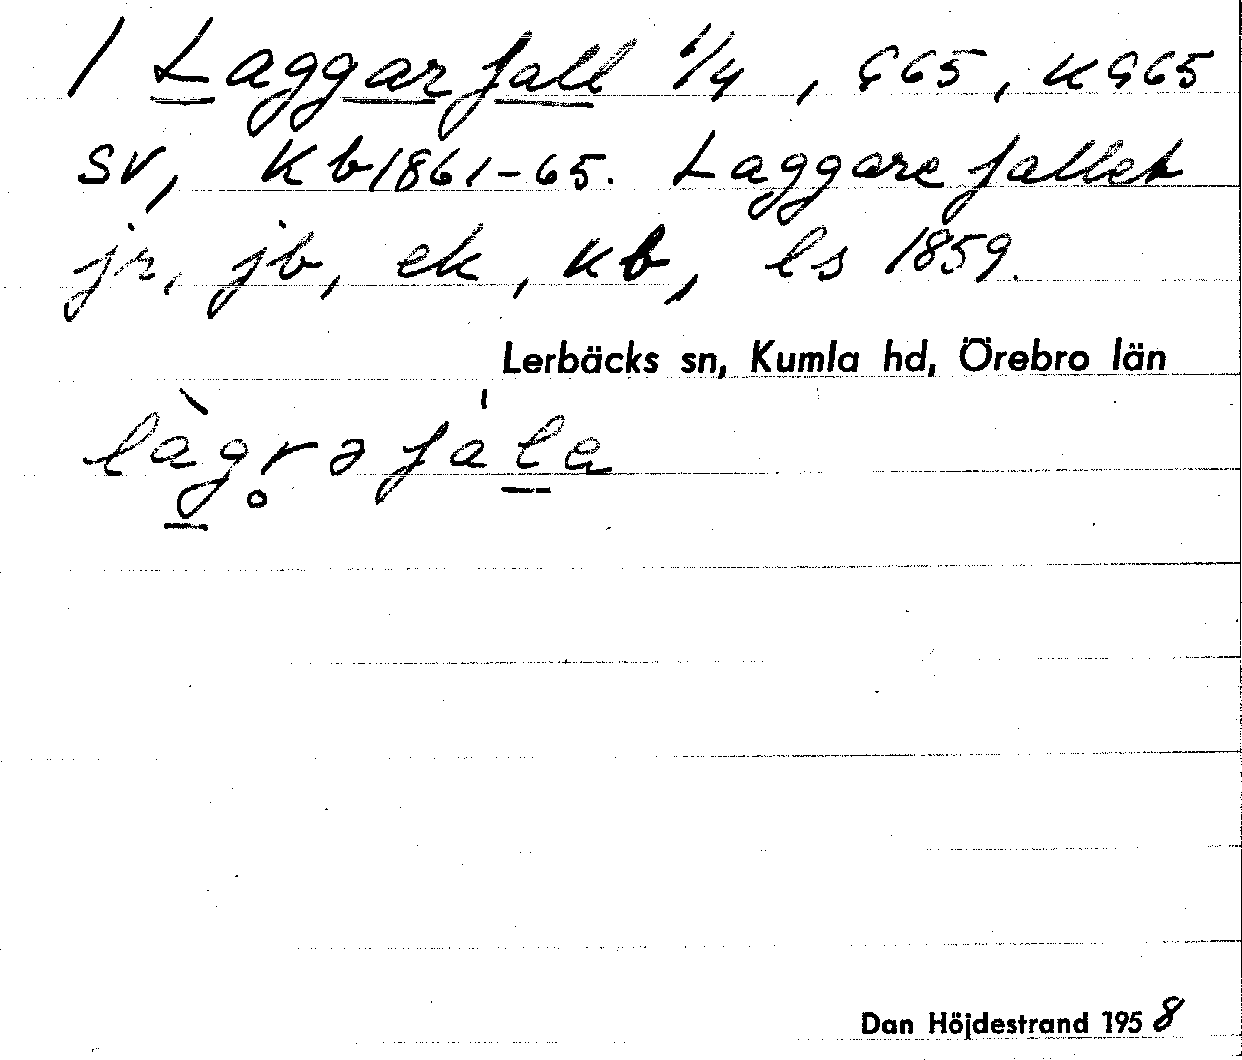 / Laggarfall 1/4, G65, KG65
SV, Kb1861-65. Laggarefallet
jr, jb, ek, kb, ls 1859.
Lerbäcks sn, Kumla hd, Örebro län
làg̲r̥əfál̲a
Dan Höjdestrand 1958